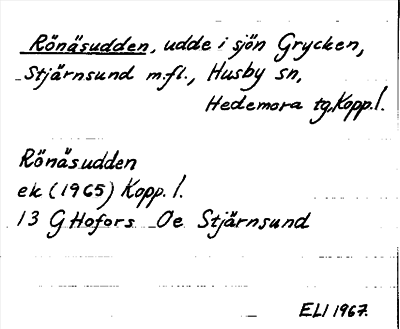 Rönäsudden, udde i sjön Grycken,
Stjärnsund m.fl., Husby sn,
Hedemora tg, Kopp. l.
Rönäsudden
ek (1965) Kopp. l.
13 G Hofors Oe Stjärnsund
ELI 1967.